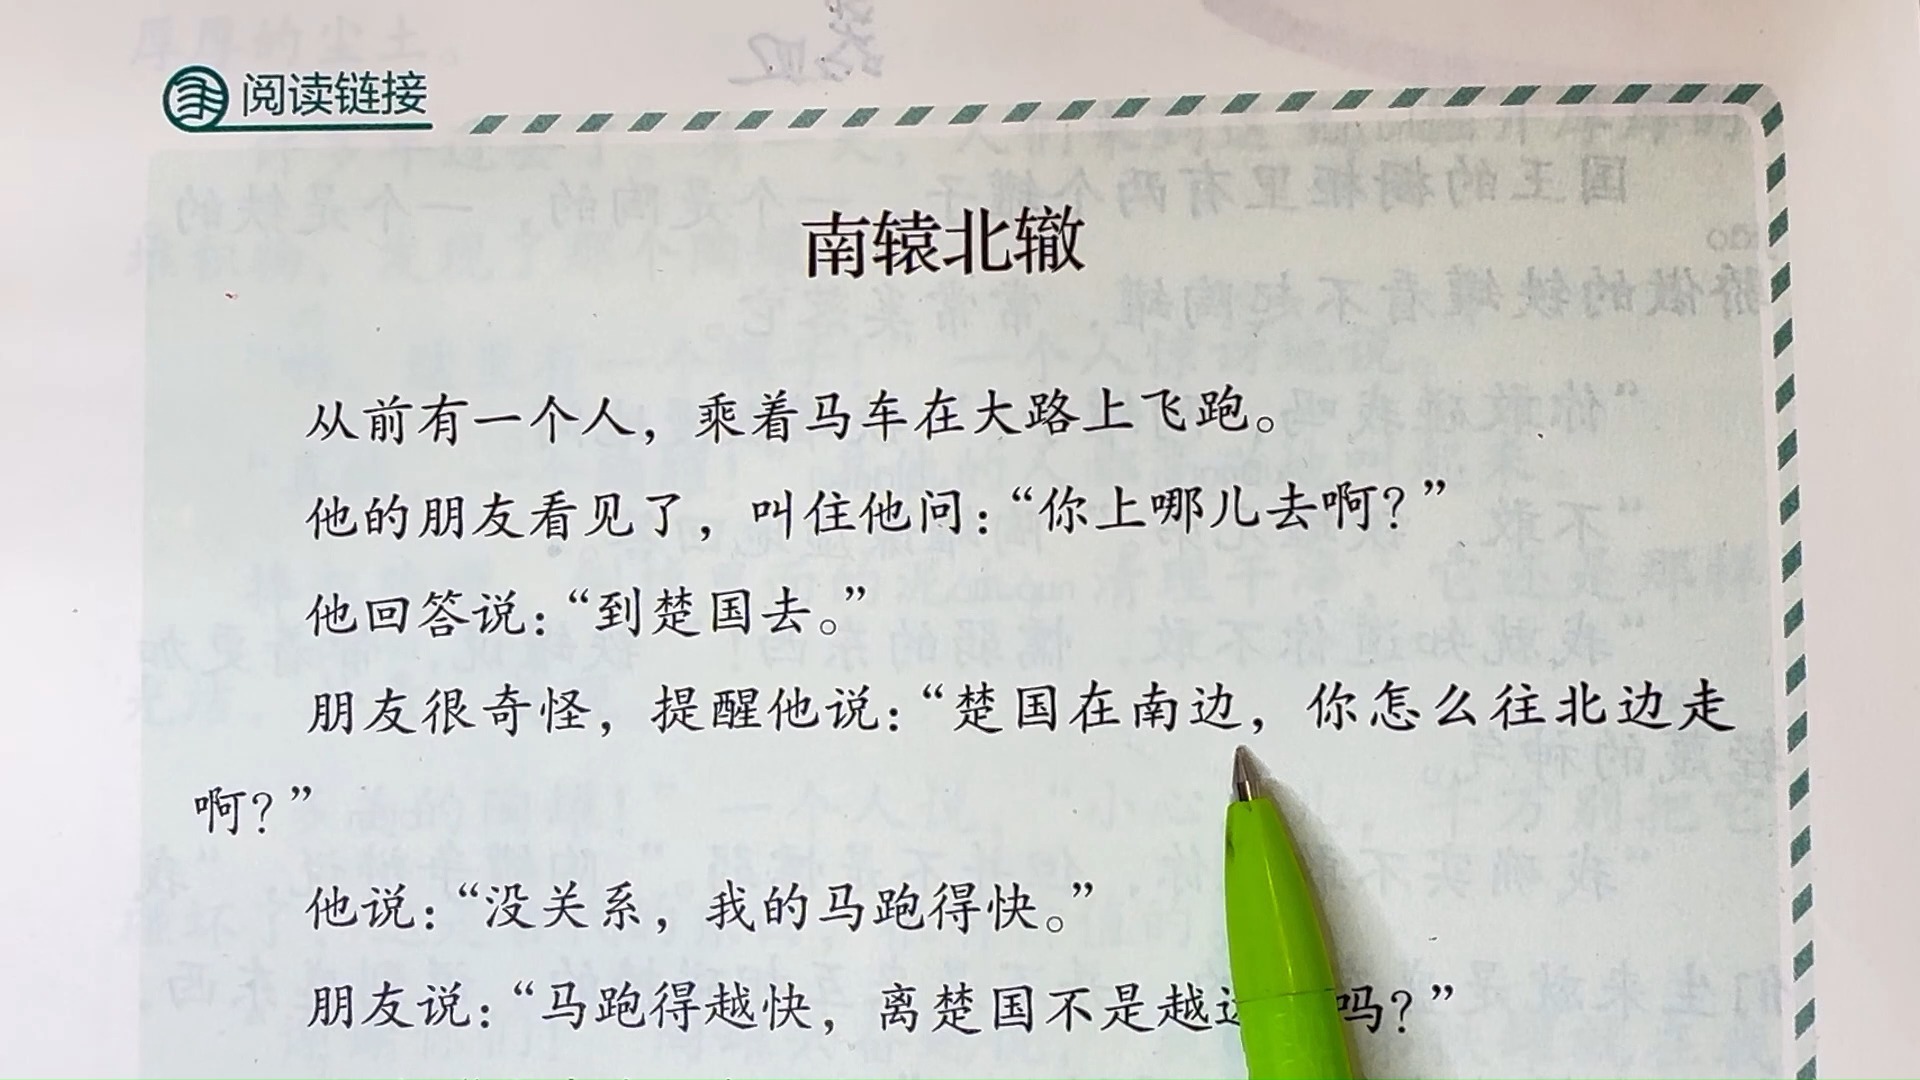 阅读链接
南辕北辙
从前有一个人，乘着马车在大路上飞跑。
他的朋友看见了，叫住他问：“你上哪儿去啊？”
他回答说：“到楚国去。”
朋友很奇怪，提醒他说：“楚国在南边，你怎么往北边走
啊？”
他说：“没关系，我的马跑得快。”
朋友说：“马跑得越快，离楚国不是越 吗？”